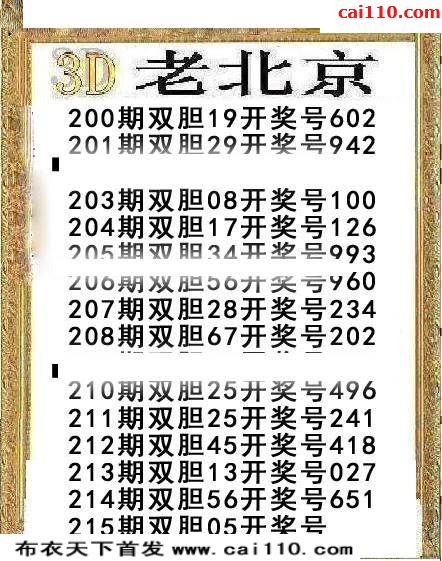 cai110.com
3D 老北京
200期双胆19开奖号602
201期双胆29开奖号942
203期双胆08开奖号100
204期双胆17开奖号126
205期双胆34开奖号993
206期双胆56开奖号960
207期双胆28开奖号234
208期双胆67开奖号202
210期双胆25开奖号496
211期双胆25开奖号241
212期双胆45开奖号418
213期双胆13开奖号027
214期双胆56开奖号651
215期双胆05开奖号
布衣天下首发 www.cai110.com